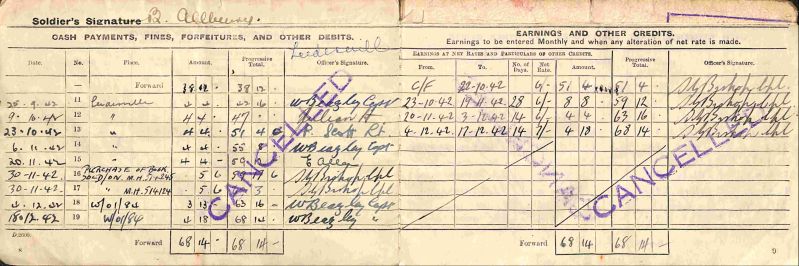 Soldier's Signature B. Allbeury.
CASH PAYMENTS, FINES, FORFEITURES, AND OTHER DEBITS.
Date. No. Place. Amount. Progressive Total. Officer's Signature.
Forward 38 12 38 12
25.9.42 11 4 4 42 16 W Beagley Capt
9.10.42 12 " 4 4 47
23.10.42 13 " 4 4 51 4 P. Scott Lt.
6.11.42 14 " 4 4 55 8 W Beagley Capt
20.11.42 15 " 4 4 59 12
30-11-42 16 PURCHASE OF BOOK SOLDION M.H. 5 6
30-11-42 17 " M.H. 514124 5 6 3
4.12.42 18 W/01/84 3 13 63 16 W Beagley Capt
18/12.42 19 W/01/84 4 18 68 14 W Beagley "
Forward 68 14 - 68 14 -
D.2600.
8
CANCELLED
EARNINGS AND OTHER CREDITS.
Earnings to be entered Monthly and when any alteration of net rate is made.
EARNINGS AT NET RATES AND PARTICULARS OF OTHER CREDITS.
From. To. No. of Days. Net Rate. Amount. Progressive Total. Officer's Signature.
C/F 22-10-42 6/- 51 4 51 4
23-10-42 19-11-42 28 6/- 8 8 59 12
20-11-42 3-12-42 14 6/- 4 4 63 16
4.12.42 17-12-42 14 7/- 4 18 68 14
CANCELLED
Forward 68 14 - 68 14 -
9